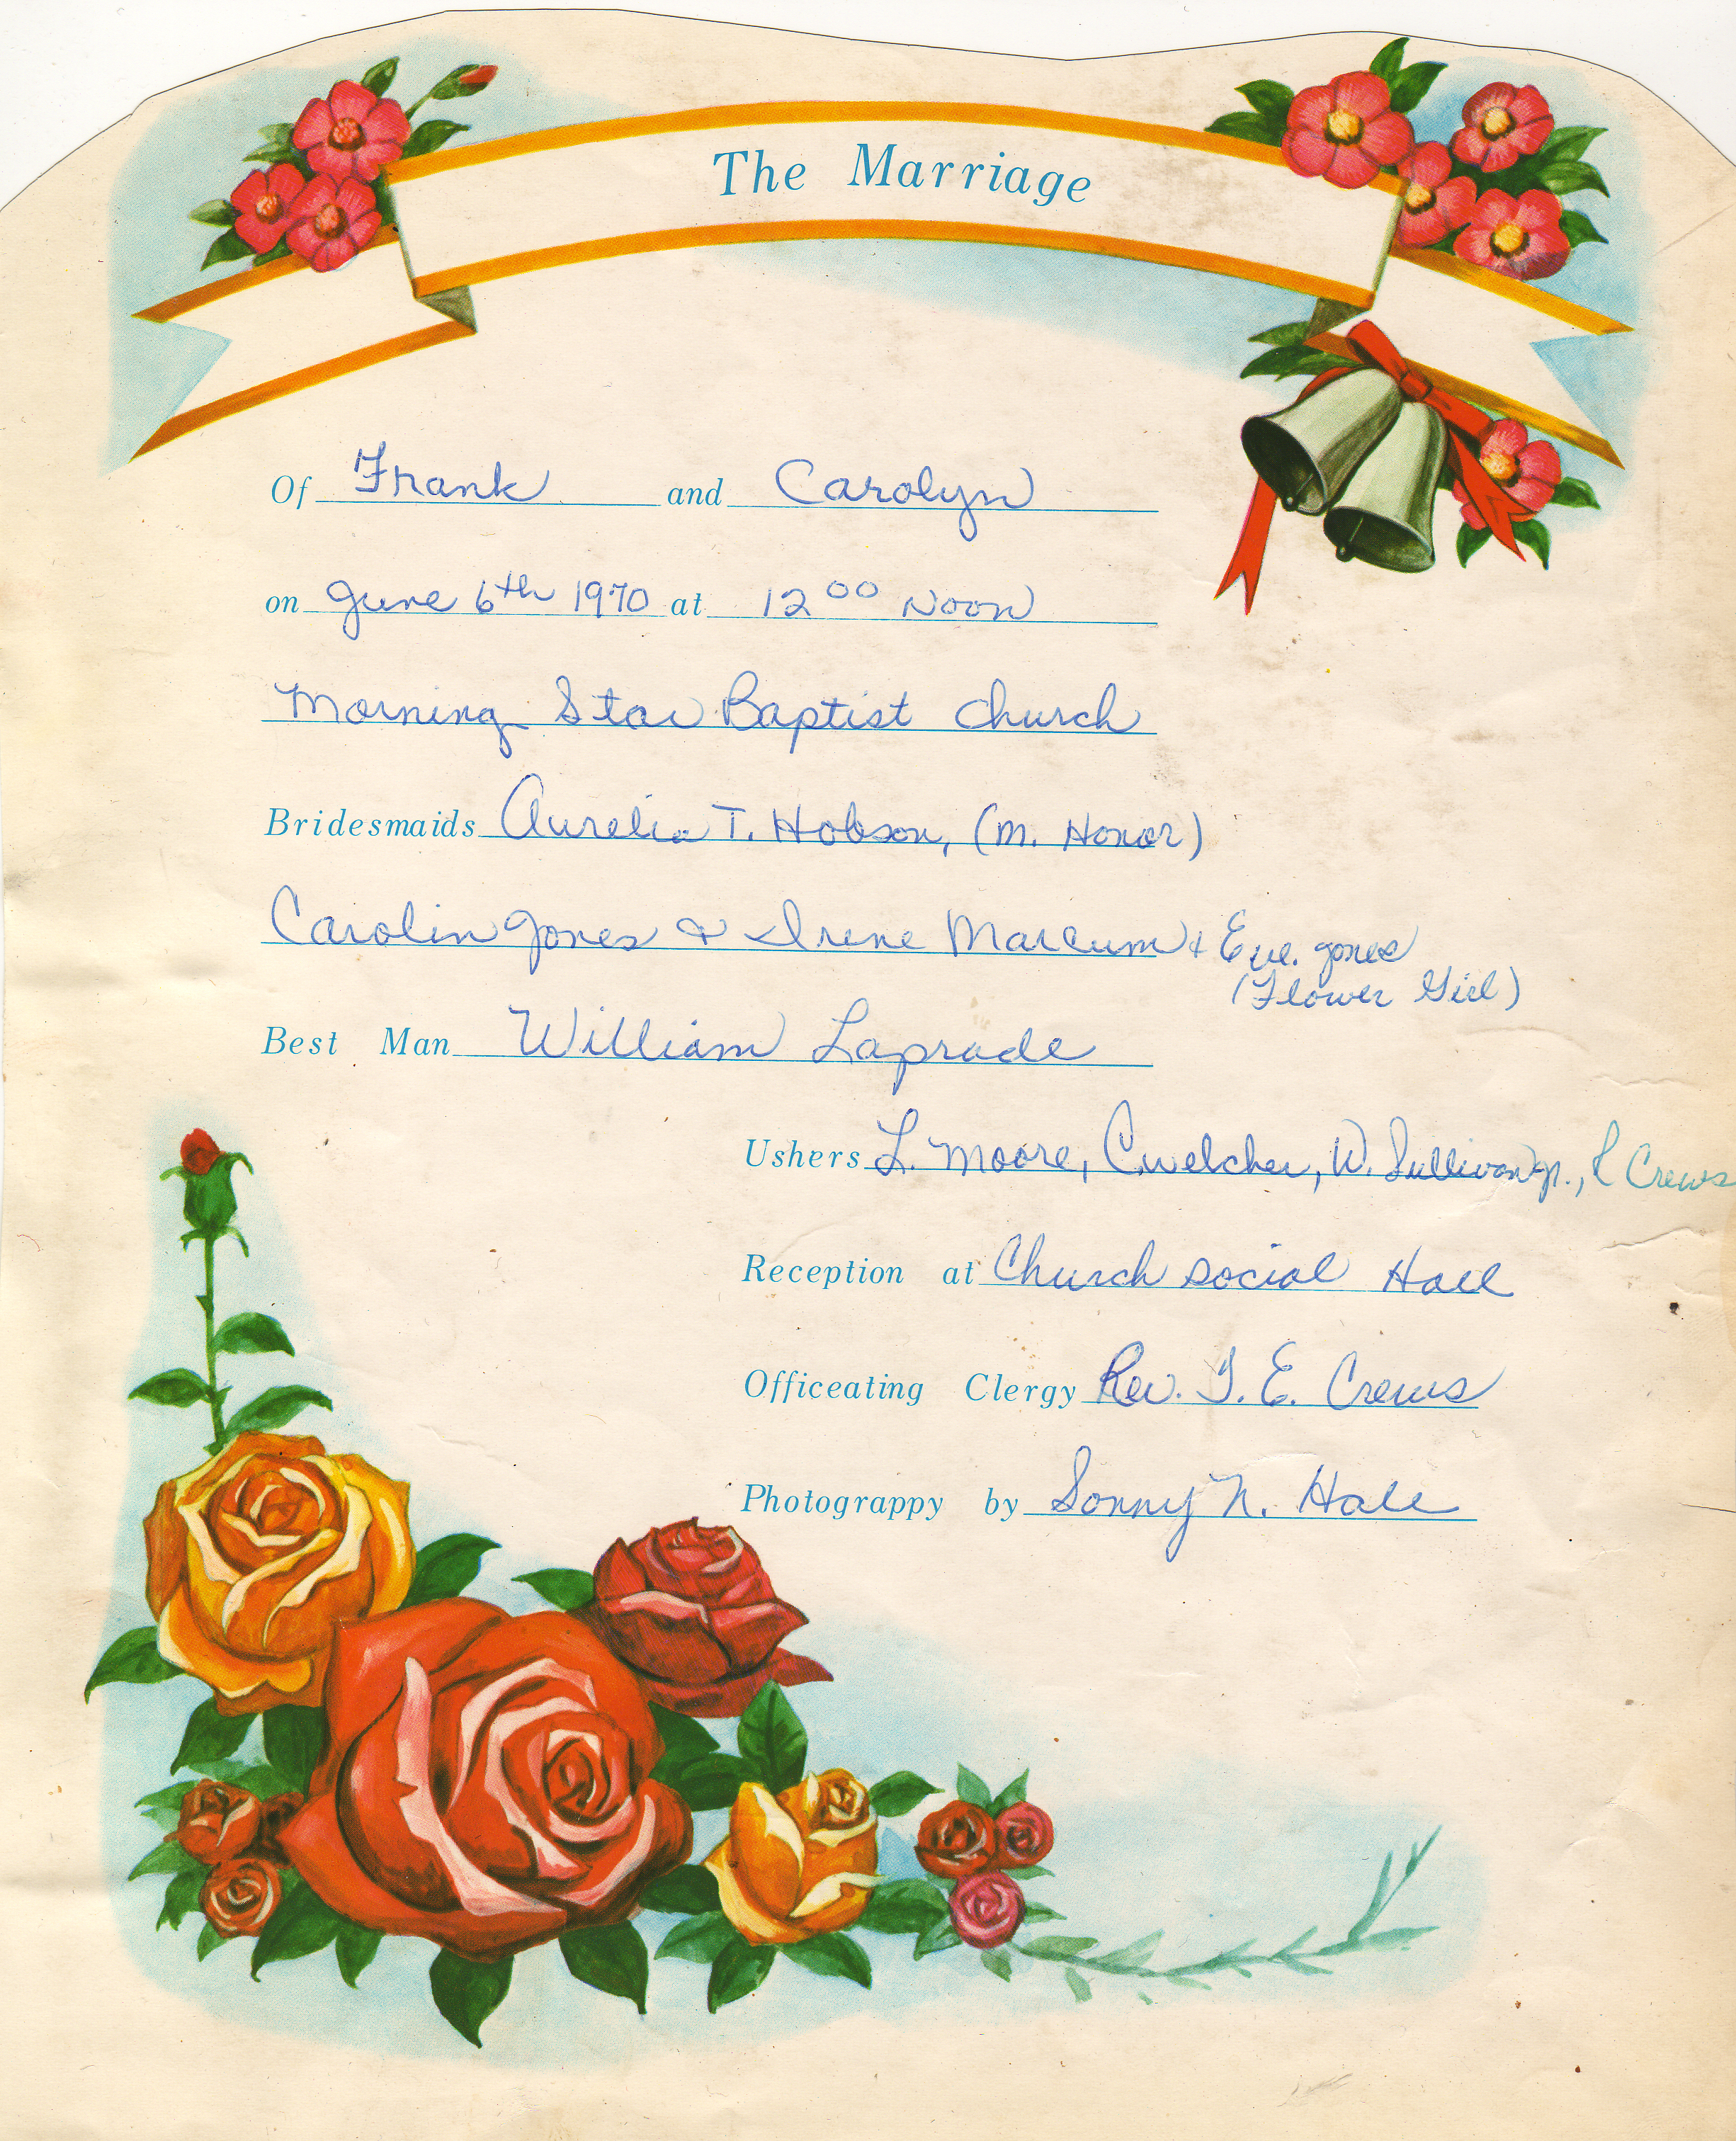 The Marriage
Of Frank and Carolyn
on June 6th 1970 at 12 00 Noon
Morning Star Baptist Church
Bridesmaids Aurelia T. Hobson, (M. Honor)
Carolin Jones & Irene Marcum & Eve. Jones
(Flower Girl)
Best Man William Laprade
Ushers L. Moore, C. Welcher, W. Sullivan Jr., R Crews
Reception at Church Social Hall
Officeating Clergy Rev. T. E. Crews
Photograppy by Sonny N. Hale